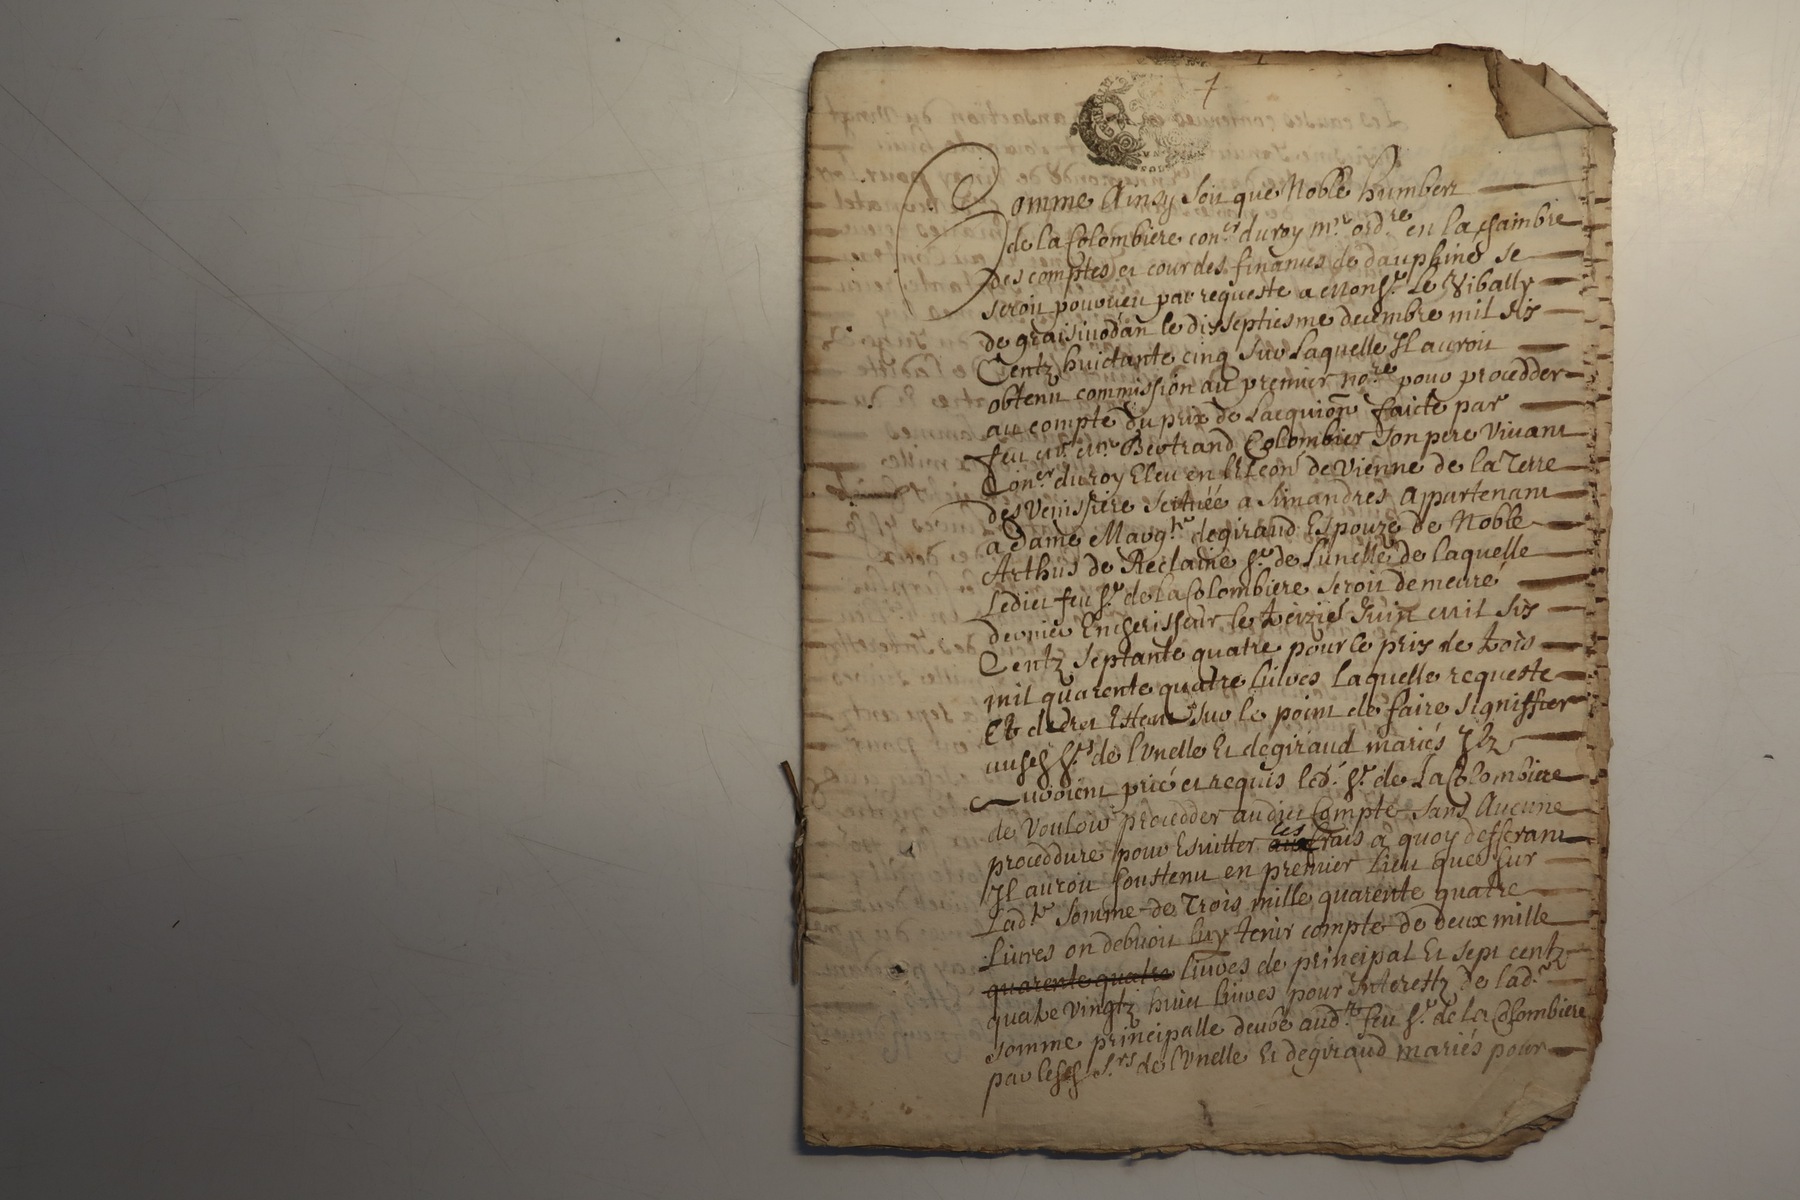 1
Comme Ainsy soit que Noble humbert
de la Colombiere con.er du roy m.re ord.re en la chambre
des comptes et cour des finances de dauphiné se
seroit pourveu par requeste a Mons.r Le Vibally
de graisivodan le dixseptiesme decembre mil six
Centz huictante cinq sur laquelle Il auroit
obtenu commission au premier no.re pour procedder
au compte du prix de lacquion faicte par
feu m.re Bertrand Colombier son pere vivant
Con.er du roy Eleu en l'Elcon de Vienne de la Terre
des Venissiere scituéé a Simandres Appartenant
a Dame Marg.te degiraud Espouze de Noble
Arthus de Reclaine s.r de Lunelle de laquelle
Ledict feu s.r de la Colombiere seroit demeuré
dernier Encherisseur le treizie Juin mil six
Centz septante quatre pour le prix de trois
mil quarente quatre livres Laquelle requeste
Et decret Estant sur le point de faire signiffier
ausd s.rs de lunelle Et degiraud mariés Ilz
auroient prié et requis led.t s.r de La Colombiere
de Vouloir procedder audict Compte sans Aucune
proceddure pour Esvitter aux les frais a quoy defferant
Il auroit soustenu en premier Lieu que sur
Lad.te somme de Trois mille quarente quatre
Livres on debvoit luy tenir compte de deux mille
quarente quatre livres de principal Et sept centz
quatre vingtz huict livres pour Interestz de lad.te
somme principalle deuve aud.t feu s.r de la Colombiere
par lesd s.rs de lunelle Et degiraud mariés pour